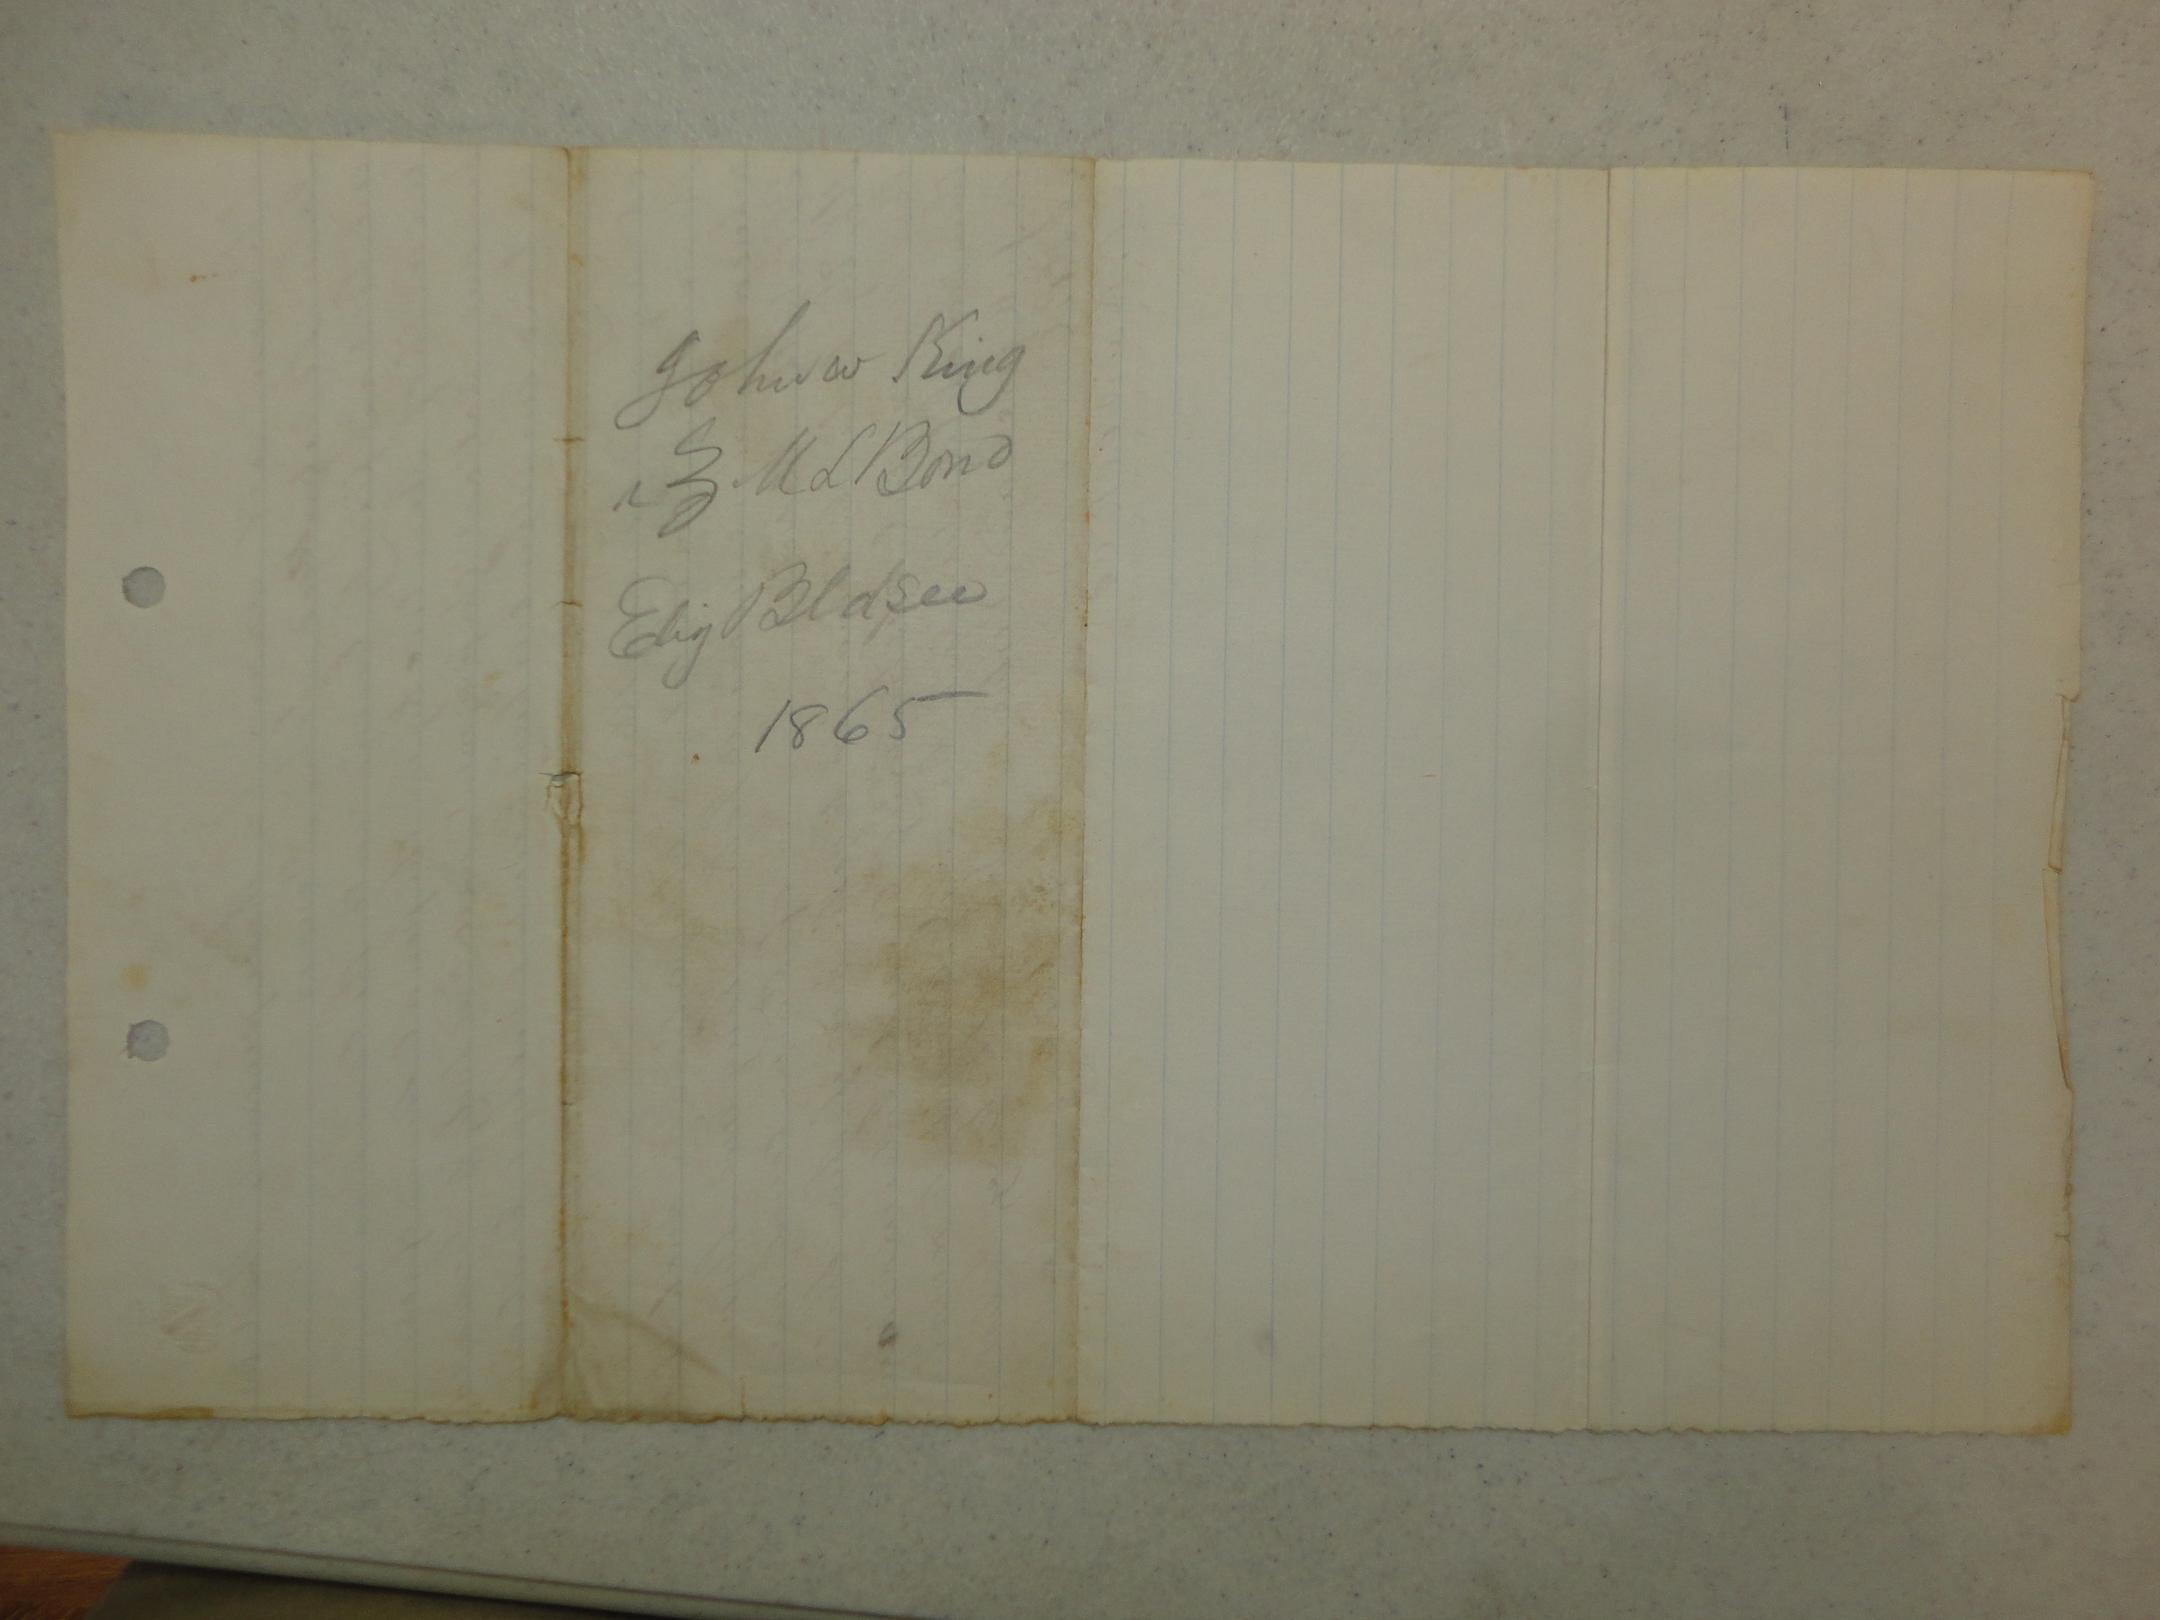 John w King
& M L Bond
Elig Bldsee
1865